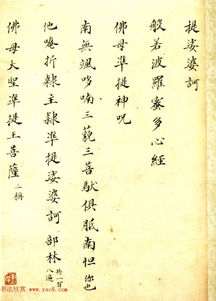 提娑婆訶
般若波羅蜜多心經
佛母準提神呪
南無颯哆喃三藐三菩馱俱胝南怛你也
他唵折隸主隸準提娑婆訶 部林 共一百八遍
佛母大準提王菩薩 三稱